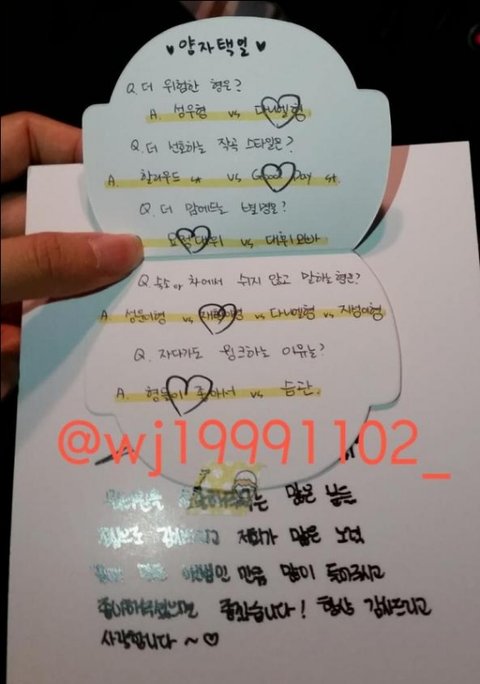 ♥ 양자택일 ♥
Q. 더 위험한 형은?
A. 성우형 vs 다니엘형
Q. 더 선호하는 작곡 스타일은?
A. 할리우드 st vs Good Day st.
Q. 더 맘에드는 별명은?
요정대휘 vs 대휘오빠
Q. 숙소 or 차에서 쉬지 않고 말하는 형은?
A 성운이형 vs 재환이형 vs 다니엘형 vs 지성이형
Q. 자다가도 윙크하는 이유는?
A. 형들이 좋아서 vs 습관.
@wj19991102_
많은 날들
감사드리고 저희가 많은 노력
앨범인 만큼 많이 들어주시고
좋아해주셨으면 좋겠습니다! 항상 감사드리고
사랑합니다 ~ ♡